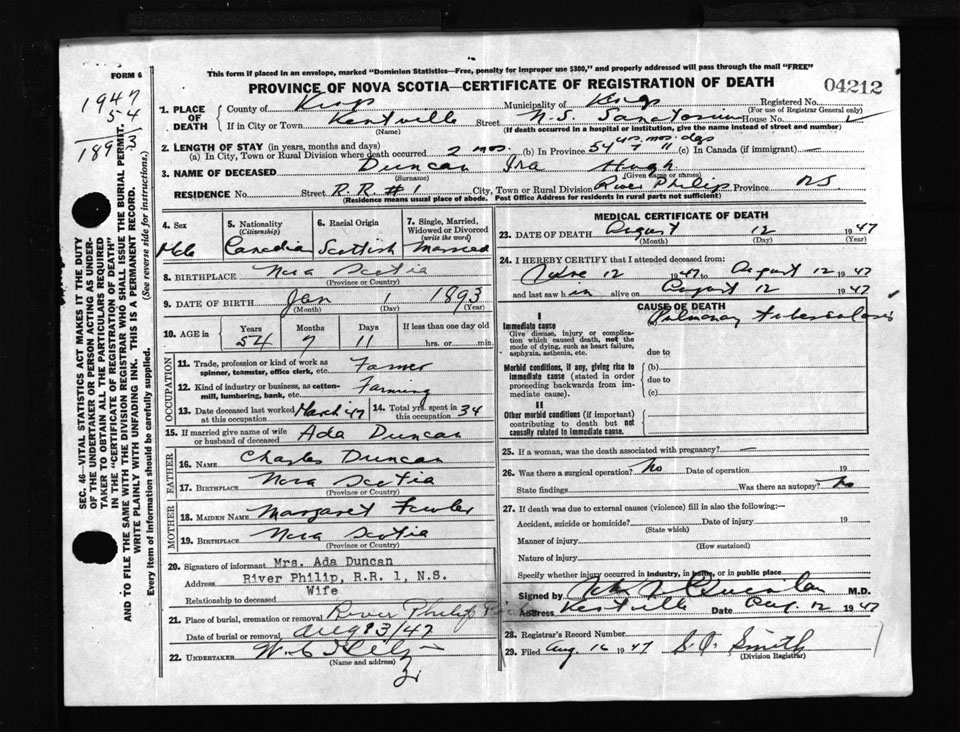 FORM 6
This form if placed in an envelope, marked "Dominion Statistics—Free, penalty for improper use $300," and properly addressed will pass through the mail "FREE"
PROVINCE OF NOVA SCOTIA—CERTIFICATE OF REGISTRATION OF DEATH
04212
1947
54
1893
SEC. 46—VITAL STATISTICS ACT MAKES IT THE DUTY
OF THE UNDERTAKER OR PERSON ACTING AS UNDERTAKER TO OBTAIN ALL THE PARTICULARS REQUIRED
IN THE "CERTIFICATE OF REGISTRATION OF DEATH"
AND TO FILE THE SAME WITH THE DIVISION REGISTRAR WHO SHALL ISSUE THE BURIAL PERMIT.
WRITE PLAINLY WITH UNFADING INK. THIS IS A PERMANENT RECORD.
Every item of information should be carefully supplied. (See reverse side for instructions.)
1. PLACE OF DEATH
County of Kings Municipality of Kings Registered No.
(For use of Registrar General only)
If in City or Town Kentville Street N.S. Sanatorium House No.
(Name) (If death occurred in a hospital or institution, give the name instead of street and number)
2. LENGTH OF STAY (in years, months and days) yrs. mos. dys
(a) In City, Town or Rural Division where death occurred 2 mos. (b) In Province 54 7 11 (c) In Canada (if immigrant) —
3. NAME OF DECEASED Duncan Ira Hugh
(Surname) (Given name or names)
RESIDENCE No. Street R.R. #1 City, Town or Rural Division River Philip Province N.S.
(Residence means usual place of abode. Post Office Address for residents in rural parts not sufficient)
4. Sex 5. Nationality (Citizenship) 6. Racial Origin 7. Single, Married, Widowed or Divorced (write the word)
Male Canadian Scottish Married
8. BIRTHPLACE Nova Scotia
(Province or Country)
9. DATE OF BIRTH Jan 1 1893
(Month) (Day) (Year)
10. AGE in Years Months Days If less than one day old
54 7 11 hrs. or min.
OCCUPATION
11. Trade, profession or kind of work as spinner, teamster, office clerk, etc. Farmer
12. Kind of industry or business, as cotton-mill, lumbering, bank, etc. Farming
13. Date deceased last worked at this occupation March 47 14. Total yrs. spent in this occupation 34
15. If married give name of wife or husband of deceased Ada Duncan
FATHER
16. NAME Charles Duncan
17. BIRTHPLACE Nova Scotia
(Province or Country)
MOTHER
18. MAIDEN NAME Margaret Fowler
19. BIRTHPLACE Nova Scotia
(Province or Country)
20. Signature of informant Mrs. Ada Duncan
Address River Philip, R.R. 1, N.S.
Relationship to deceased Wife
21. Place of burial, cremation or removal River Philip
Date of burial or removal Aug 13/47
22. UNDERTAKER
(Name and address)
MEDICAL CERTIFICATE OF DEATH
23. DATE OF DEATH August 12 1947
(Month) (Day) (Year)
24. I HEREBY CERTIFY that I attended deceased from:
June 12 1947 to August 12 1947
and last saw him alive on August 12 1947
CAUSE OF DEATH
I
Immediate cause (a) Pulmonary Tuberculosis
Give disease, injury or complication which caused death, not the mode of dying, such as heart failure, asphyxia, asthenia, etc.
due to
Morbid conditions, if any, giving rise to immediate cause (stated in order proceeding backwards from immediate cause).
(b)
due to
(c)
II
Other morbid conditions (if important) contributing to death but not causally related to immediate cause.
25. If a woman, was the death associated with pregnancy? —
26. Was there a surgical operation? No Date of operation 19
State findings Was there an autopsy? No
27. If death was due to external causes (violence) fill in also the following:—
Accident, suicide or homicide? Date of injury 19
(State which)
Manner of injury
(How sustained)
Nature of injury
Specify whether injury occurred in industry, in home, or in public place
Signed by M.D.
Address Kentville Date Aug. 12 1947
28. Registrar's Record Number
29. Filed Aug. 16 1947 Smith
(Division Registrar)